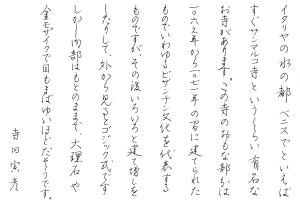 イタリヤの水の都 ベニスでといえば
すぐサンマルコ寺というくらい有名な
お寺があります。この寺のおもな部分は
一〇六三年から一〇七一年の間に建てられた
ものでいわゆるビザンチン文化を代表する
ものですが、その後いろいろと建て増しを
したりして、外から見るとゴシック式です
しかし内部はもとのままで、大理石や
金モザイクで目もまばゆいほどだそうです。
寺田寅彦